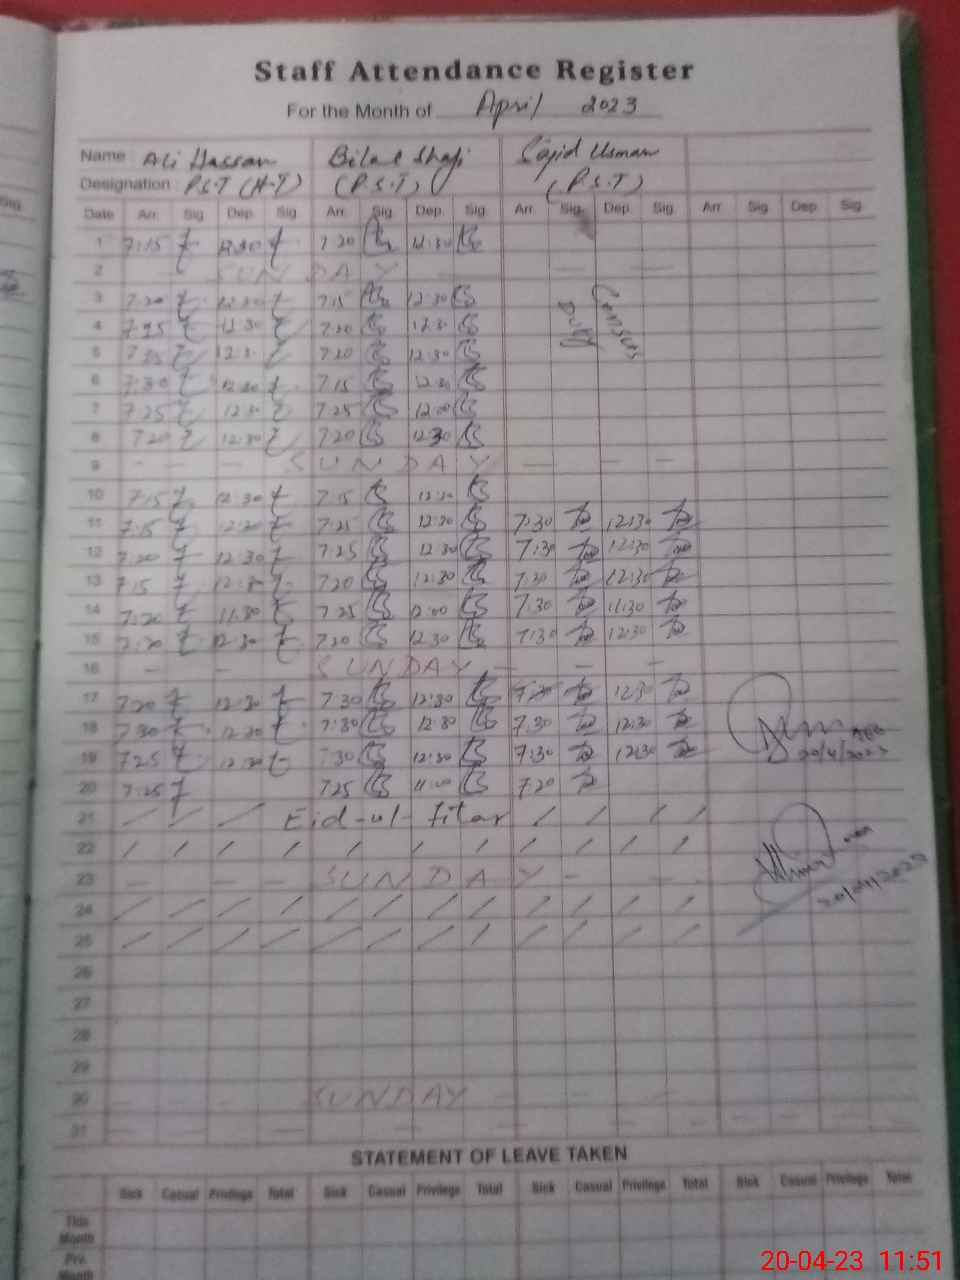 Staff Attendance Register
For the Month of April 2023
Name : Ali Hassan Bilal Shafi Sajid Usman
Designation : P.S.T (H.T) (P.S.T) (P.S.T)
Date Arr. Sig. Dep. Sig. Arr. Sig. Dep. Sig. Arr. Sig. Dep. Sig. Arr. Sig. Dep. Sig.
1 7:15 7:20 11:30
2 SUNDAY
3 7:20 12:30 7:15 12:30
Census Duty
4 12:30 7:20 12:30
5 7:20 12:30
6 7:30 12:30 7:15 12:30
7 7:25 12:30 7:25 12:00
8 7:20 12:30 7:20 12:30
9 - - - SUNDAY - - -
10 7:15 12:30 7:15 12:30
11 7:15 12:30 7:25 12:30 7:30 12:30
12 7:20 12:30 7:25 12:30 7:30 12:30
13 7:15 12:30 7:20 12:30 7:30 12:30
14 7:20 11:30 7:25 12:00 7:30 11:30
15 7:20 12:30 7:20 12:30 7:30 12:30
16 - - SUNDAY - - -
17 7:20 12:30 7:30 12:30 7:30 12:30
18 7:30 12:30 7:30 12:30 7:30 12:30
19 7:25 12:30 7:30 12:30 7:30 12:30
20/4/2023
20 7:25 7:25 11:00 7:20
21 / / / Eid-ul-Fitar / / / /
22 / / / / / / / / / / / /
23 - - - SUNDAY - - -
20/04/2023
24 / / / / / / / / / / / /
25 / / / / / / / / / / / /
26
27
28
29
30 SUNDAY
31
STATEMENT OF LEAVE TAKEN
Sick Casual Privilege Total Sick Casual Privilege Total Sick Casual Privilege Total Sick Casual Privilege Total
This Month
Pre. Month
20-04-23 11:51